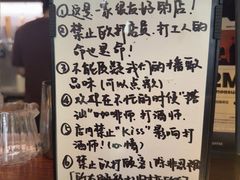 ①这是一家很友好的店!
②禁止殴打店员.打工人的
命也是命!
③不能质疑我们的播歌
品味(可以点歌)
④欢迎在不忙的时候"搭
讪"咖啡师 打酒师.
⑤店内禁止"Kiss"影响打
酒师!心情)
⑥禁止殴打